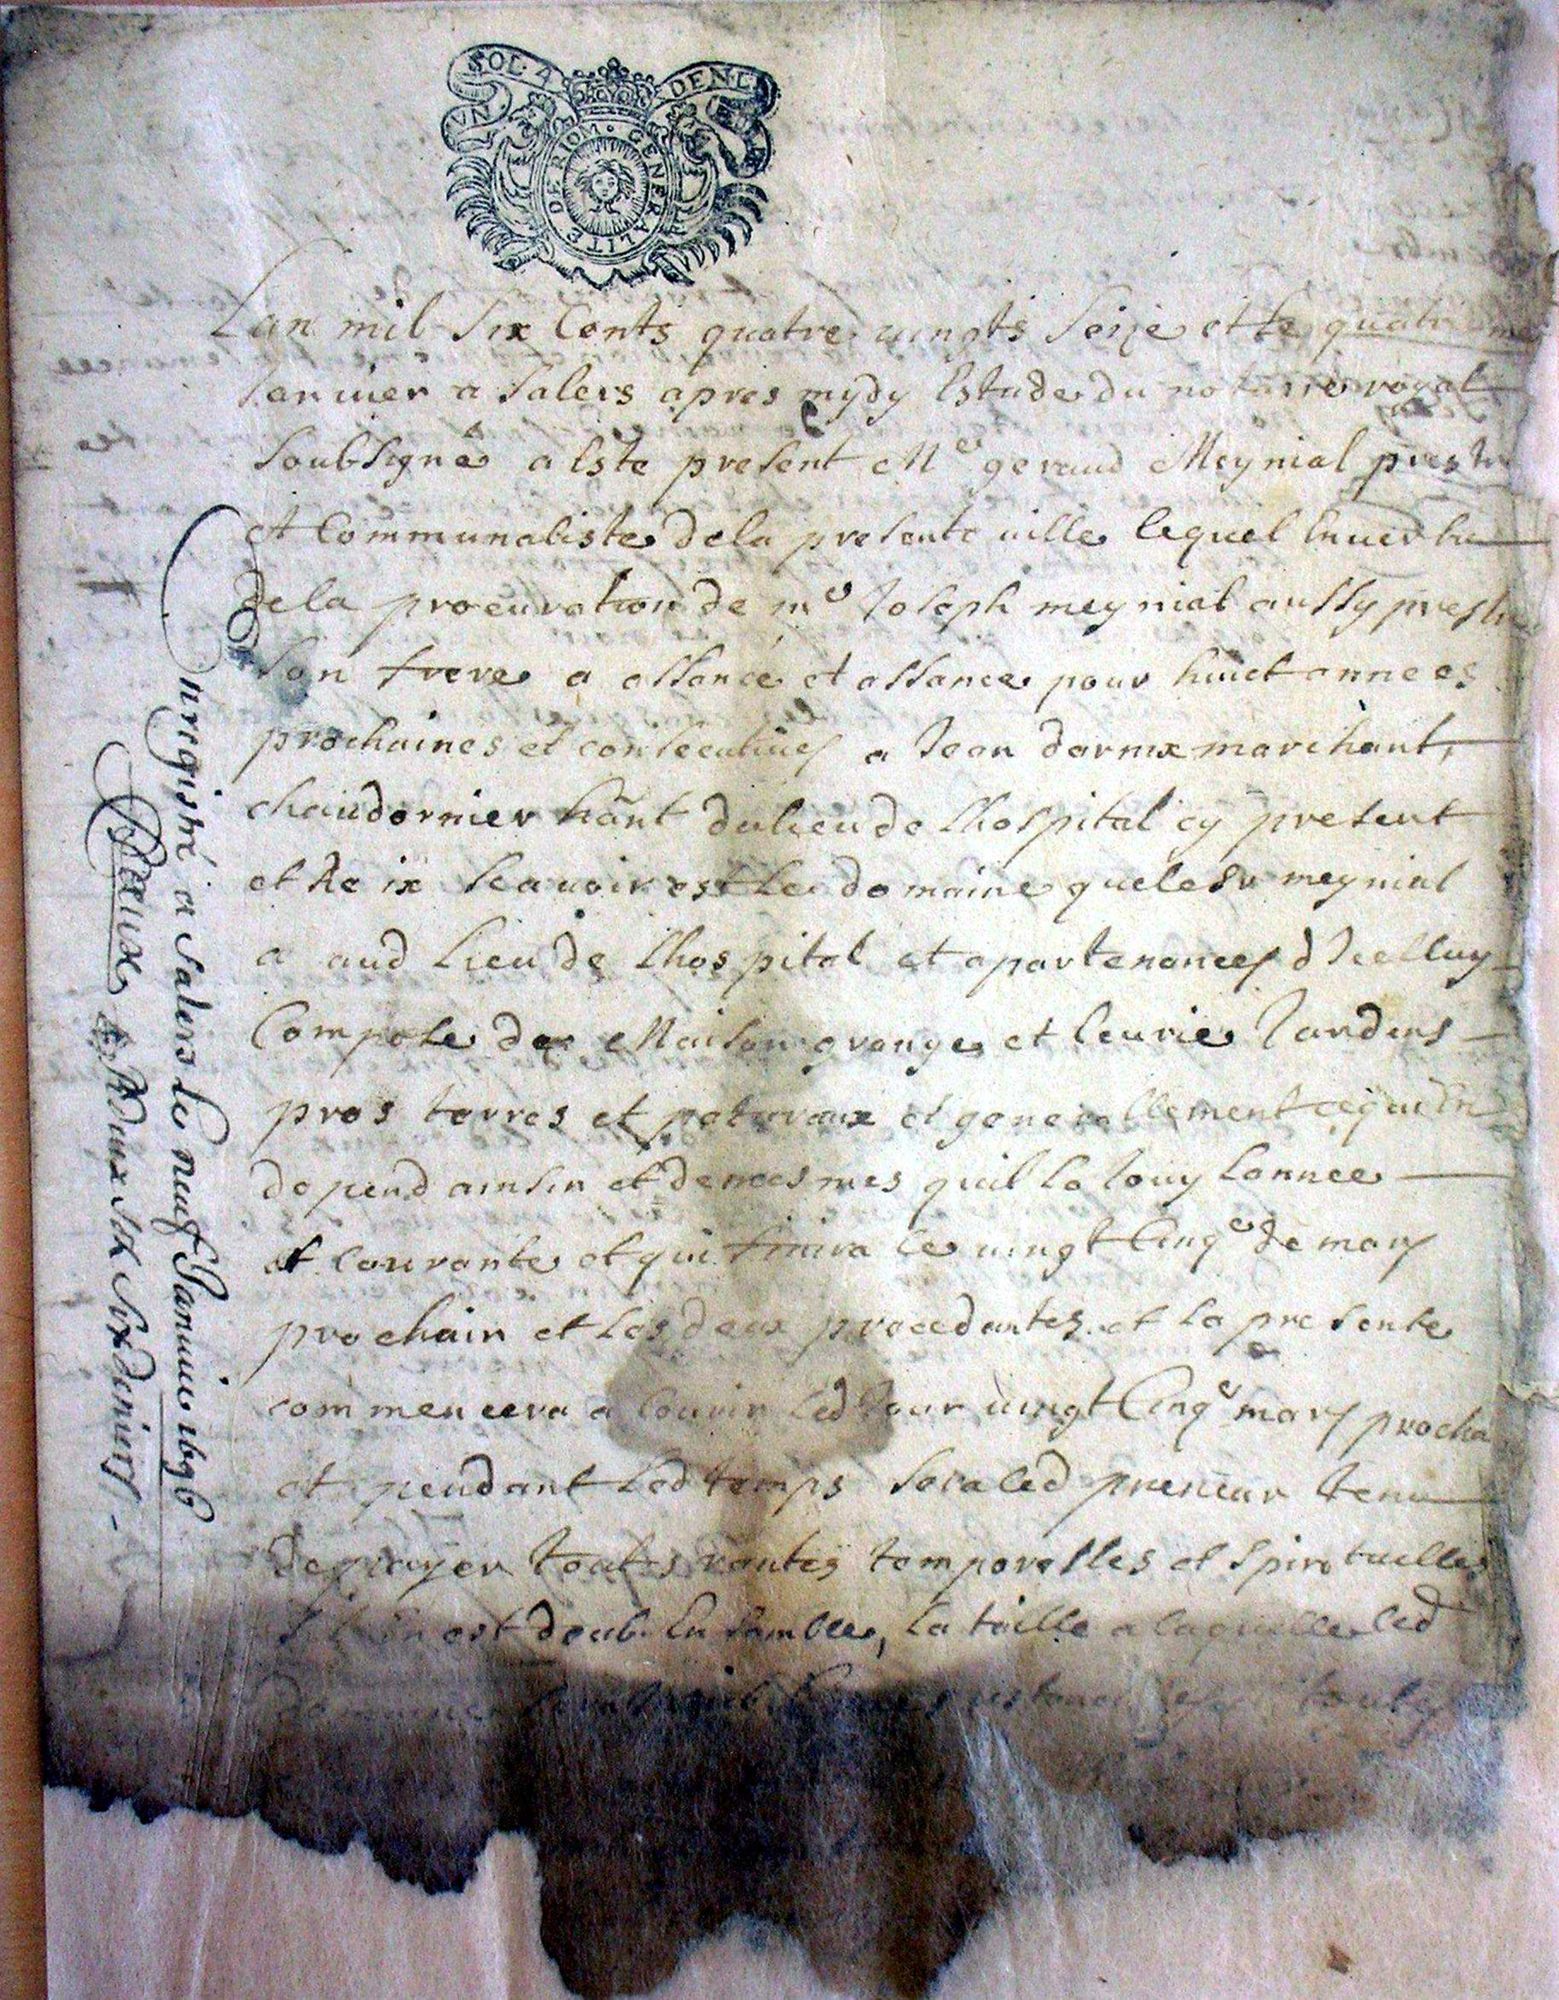 VN SOL 4 DEN
GENERALITE DE RIOM
Lan mil Six Cents quatre vingts Seize et le quatriesme
Janvier a Salers apres mydy Estude du notaire royal
Soubsigné a Este present Me geraud Meynial prestre
et Communaliste de la presente ville lequel En vertu
de la procuration de me Joseph meynial aussy prestre
son frere a assancé et assance pour huict années
prochaines et consecutives a Jean darnix marchant
chaudornier hant du lieu de Lhospital cy present
et Scavoir est Le domaine que lesd meynial
a aud Lieu de Lhospital et apartenances d Icelluy
Compose de Maison grange et Jardins
pres terres et patureaux et generallement ce qui En
depend ainsin et de mesmes quil la Jouy Lannee
et courante et qui finira le vingt Cinqe de mars
prochain et Les deux precedantes et La presente
commencera a Courir Led Jour vingt Cinqe mars procha
et pendant Led temps Sera Led preneur tenu
de payer toutes rantes temporelles et Spirituelles
est deub Ensamble, La taille a laquelle Led
domaine
nregistré a Salers Le neuf Januier 1696
six deniers